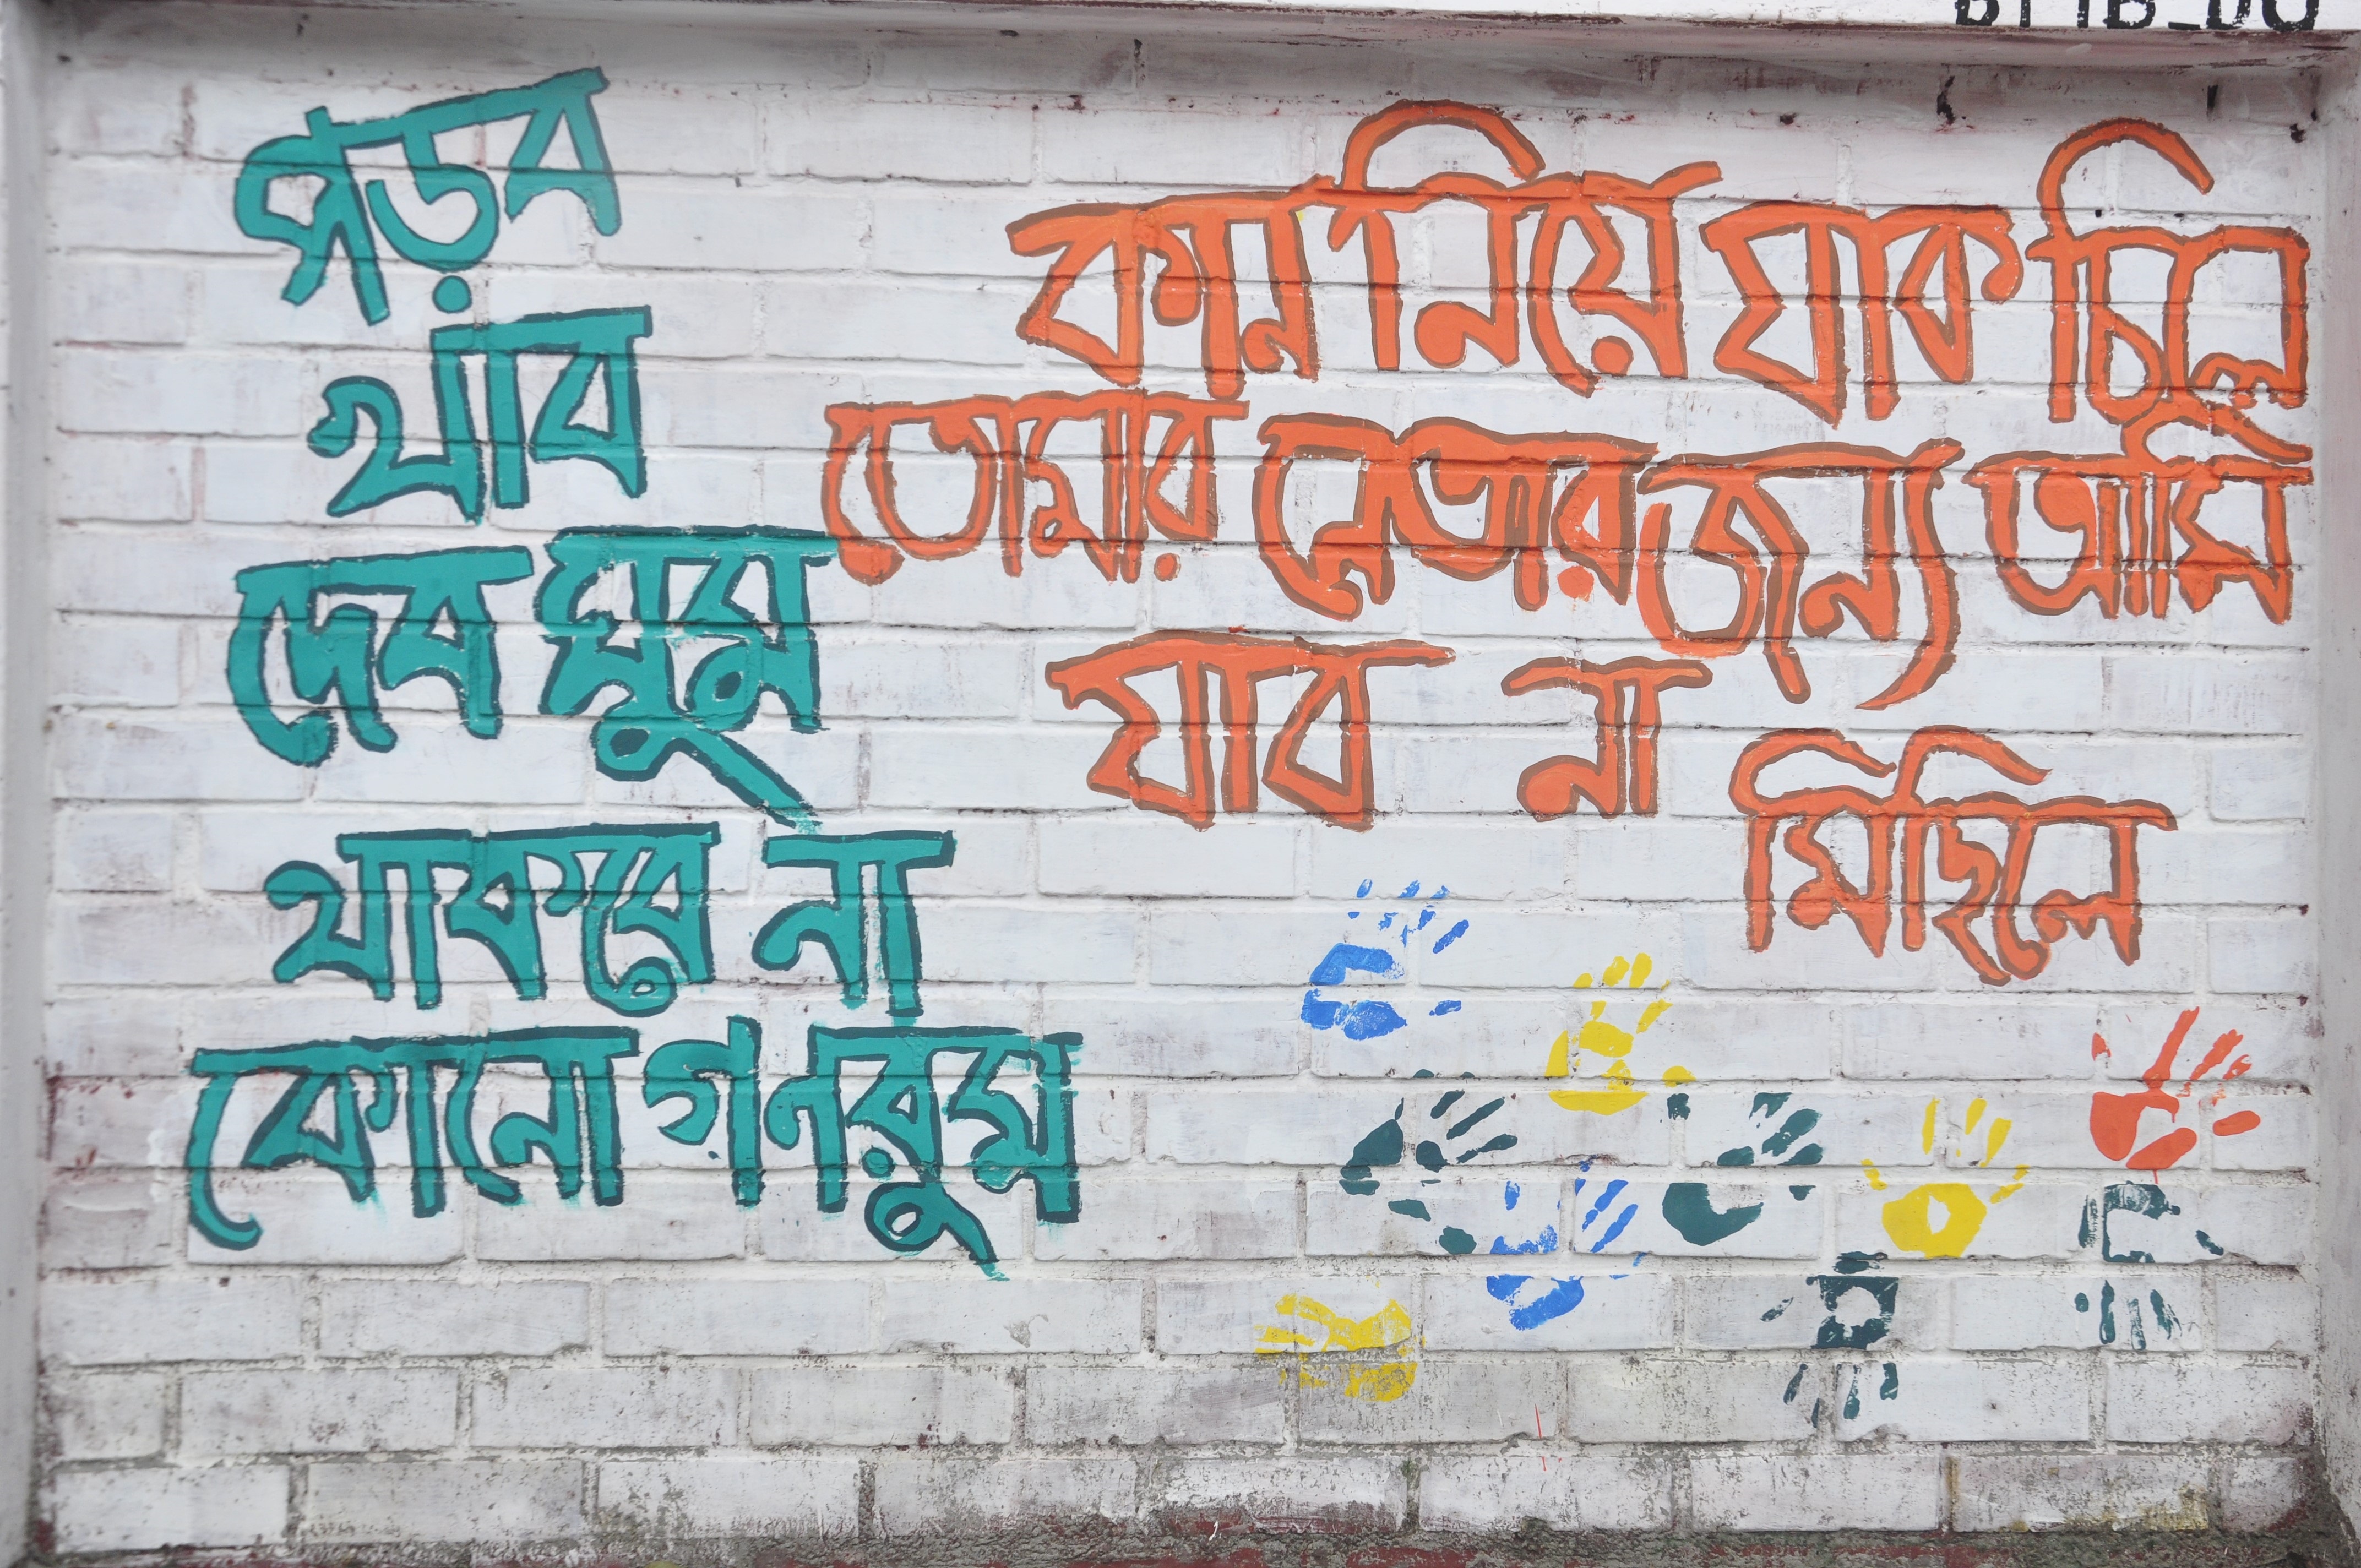 পড়ব
খাব
দেব ঘুম
থাকবে না
কোনো গণরুম
কান নিয়ে যাক চিলে
তোমার নেতার জন্য আমি
যাব না
মিছিলে